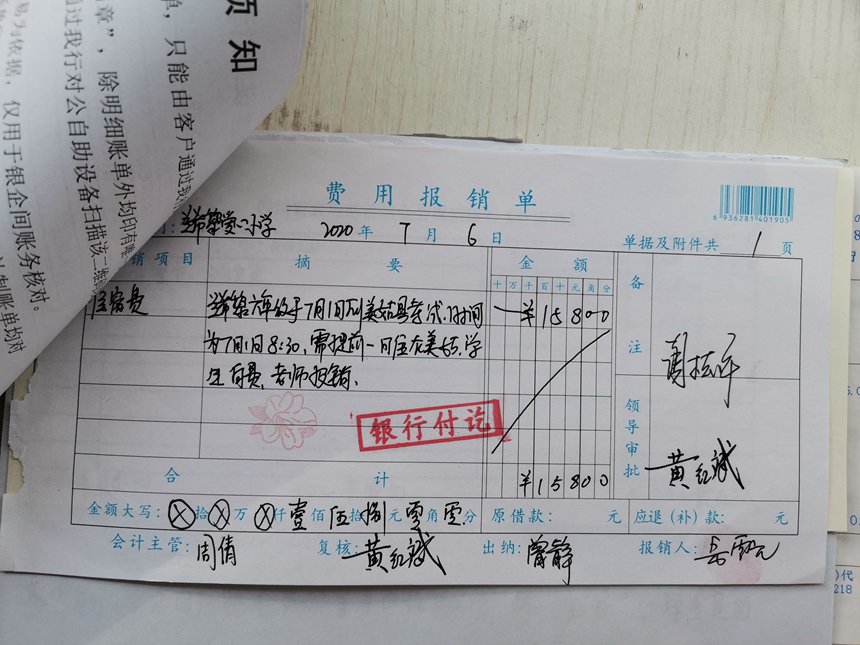 须知
单，只能由客户通过我行
章”，除明细账单外均印有
通过我行对公自助设备扫描该二维
易为依据，仅用于银企间账务核对。
制账单均对
费用报销单
6936281401905
小学 2020年7月6日 单据及附件共 1 页
销项目 摘要 金额 备注
十万千百十元角分
住宿费
于7月1日到美姑县考试.时间 ¥15800
为7月1日8:30,需提前一日住在美姑.学
生自费,老师报销、
银行付讫
领导审批 黄红斌
合计 ¥15800
金额大写：ⓧ拾ⓧ万ⓧ仟壹佰伍拾捌元零角零分 原借款： 元 应退（补）款： 元
会计主管：周倩 复核：黄红斌 出纳：曾静 报销人：
)代
218